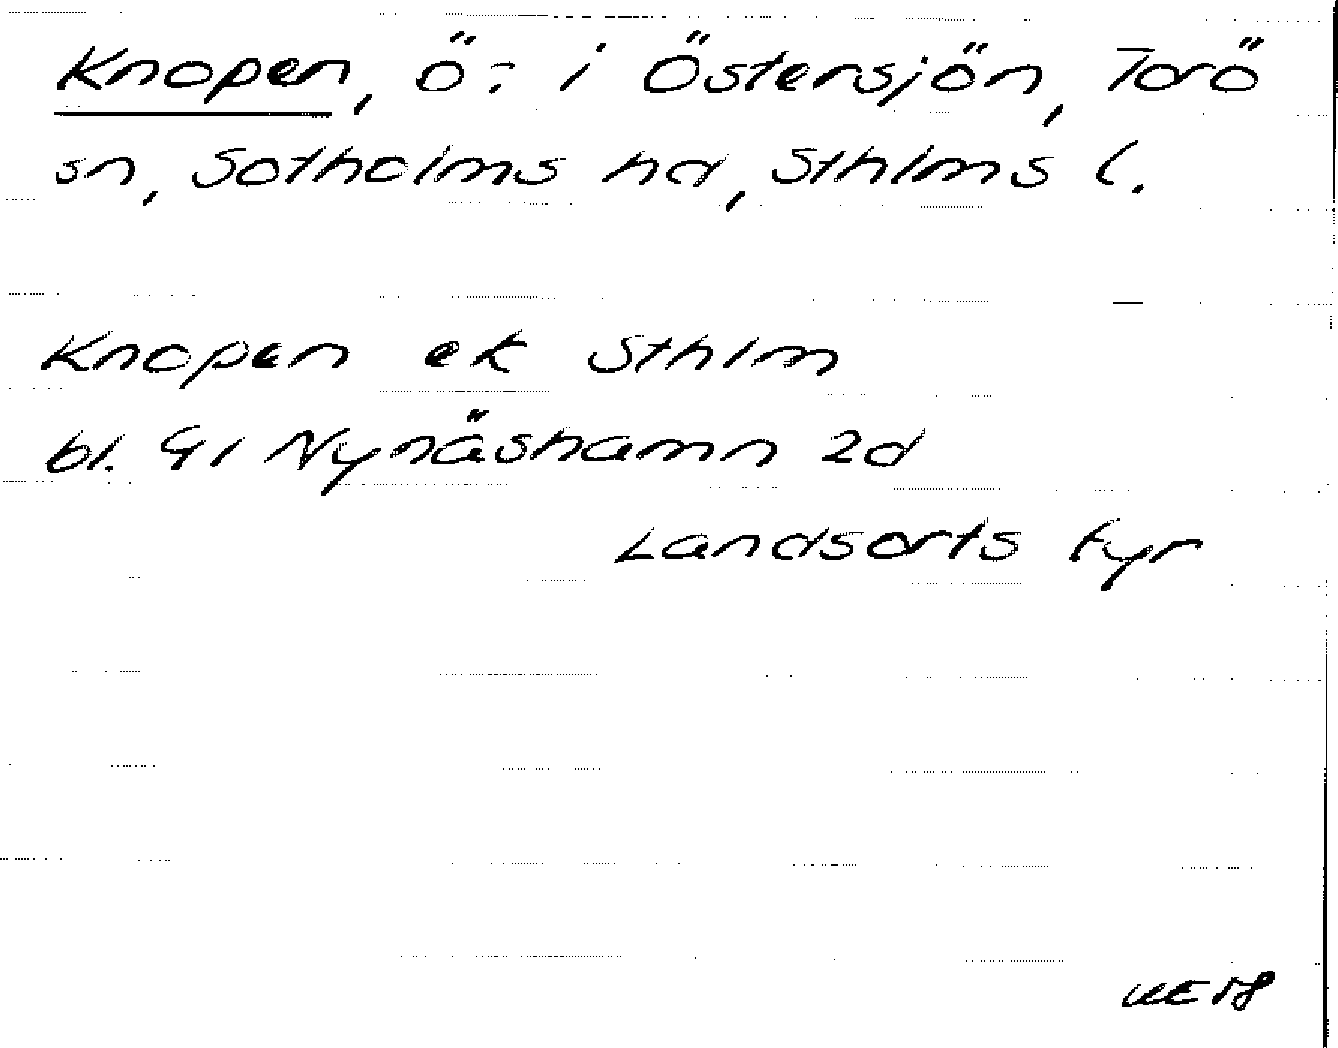 Knopen, ö: i Östersjön, Torö
sn, Sotholms hd, Sthlms l.
Knopen ek Sthlm
bl. 41 Nynäshamn 2d
Landsorts fyr